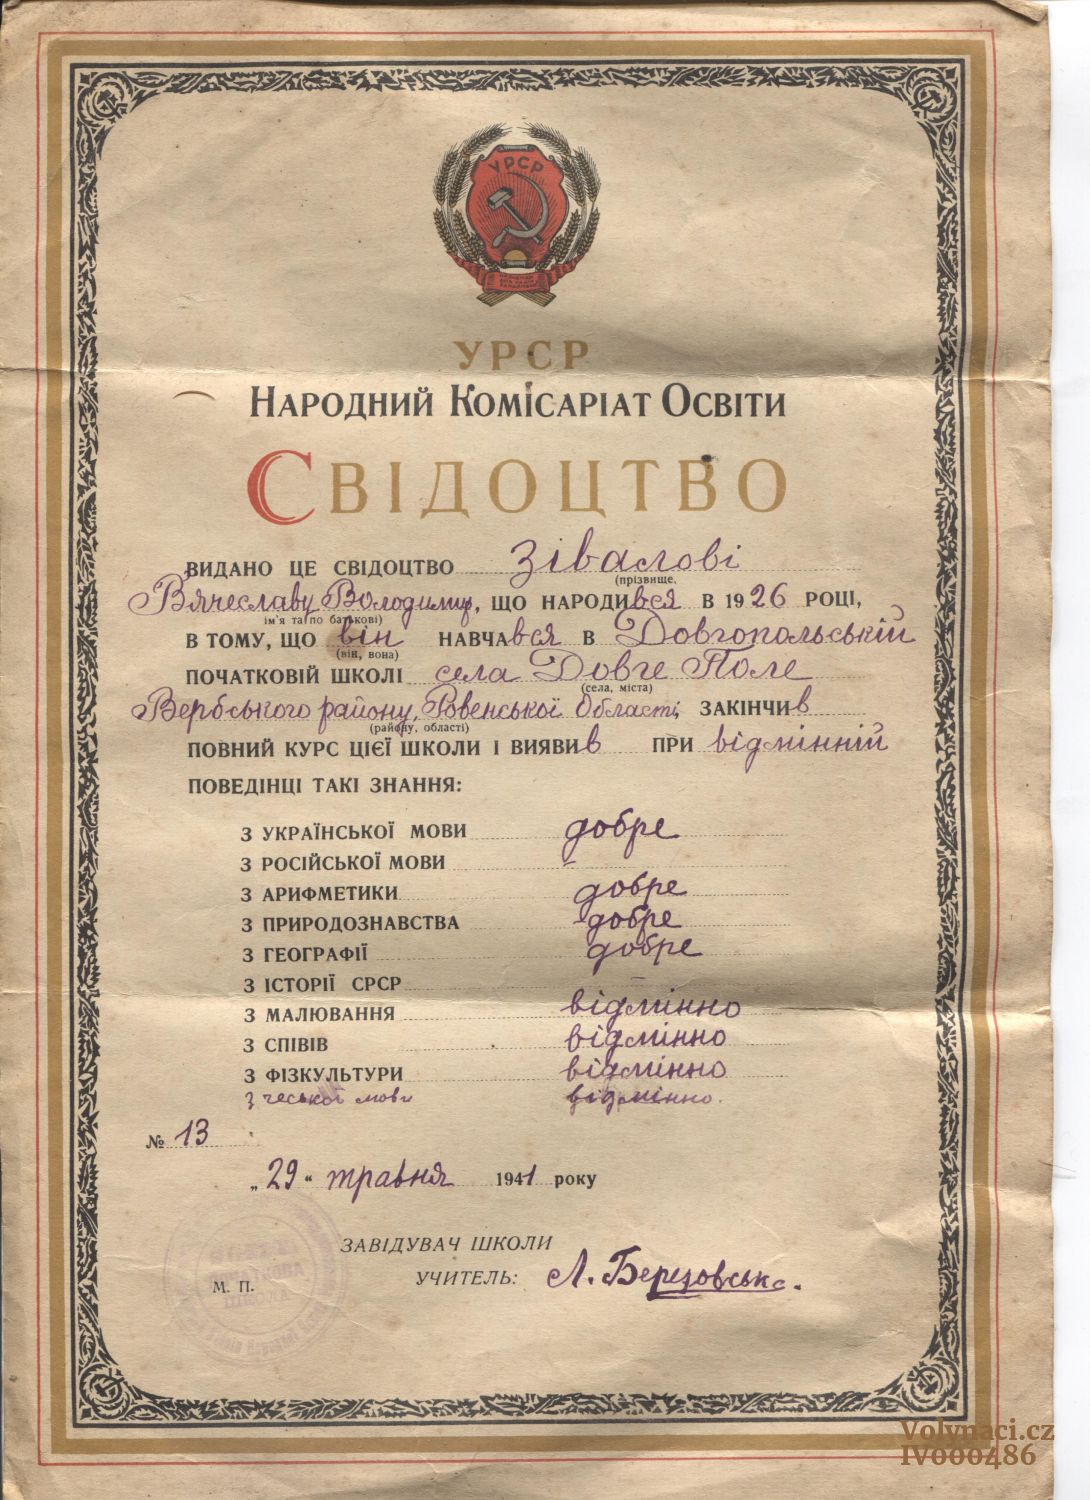 УРСР
УРСР
НАРОДНИЙ КОМІСАРІАТ ОСВІТИ
СВІДОЦТВО
ВИДАНО ЦЕ СВІДОЦТВО Зівалові
(прізвище,
Вячеславу Володимир, ЩО НАРОДИВСЯ В 1926 РОЦІ,
ім'я та по батькові)
В ТОМУ, ЩО він НАВЧАВСЯ В Довгопольській
(він, вона)
ПОЧАТКОВІЙ ШКОЛІ села Довге Поле
(села, міста)
Вербського району, Ровенської Області, ЗАКІНЧИВ
(району, області)
ПОВНИЙ КУРС ЦІЄЇ ШКОЛИ І ВИЯВИВ ПРИ відмінній
ПОВЕДІНЦІ ТАКІ ЗНАННЯ:
З УКРАЇНСЬКОЇ МОВИ добре
З РОСІЙСЬКОЇ МОВИ –
З АРИФМЕТИКИ добре
З ПРИРОДОЗНАВСТВА добре
З ГЕОГРАФІЇ добре
З ІСТОРІЇ СРСР –
З МАЛЮВАННЯ відмінно
З СПІВІВ відмінно
З ФІЗКУЛЬТУРИ відмінно
з чеської мови відмінно.
№ 13
„29" травня 1941 року
ЗАВІДУВАЧ ШКОЛИ
УЧИТЕЛЬ: Л. Березовськ.
М. П.
Volynaci.cz
IV000486